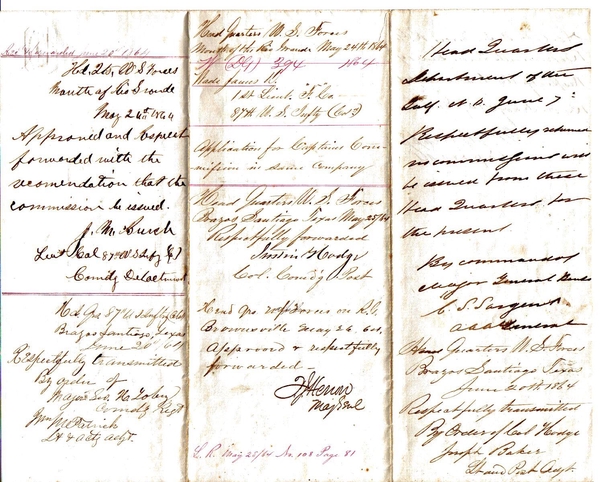 forwarded June 20th 1864
Hd Qts U S Forces
Mouth of Rio Grande
May 24th 1864
Approved and respect
forwarded with the
recomendation that the
commission be issued.
J. M. Burch
Lieut Col 87th U S Infty
Comdg Detachment
Hd Qrs 87th U S Infty
Brazos Santiago, Texas
June 20th 64
Respectfully transmitted
By order of
Comdg Regt
Lt & actg adjt.
Head Quarters U. S. Forces
Mouth of the Rio Grande May 24th 1864
394 1864
Wade James
1st Lieut. F. Co
87th U. S. Infty (Col'd)
Application for Captains Com-
mission in same Company
Head Quarters U. S. Forces
Brazos Santiago Texas May 25/64
Respectfully forwarded
Justin Hodge
Col. Comdg Post
Head Qrs U S Forces on R. G.
Brownsville May 26. 64.
Approved & respectfully
forwarded
F J Herron
Maj Genl
E. R. May 25/64 No. 108 Page 81
Head Quarters
Department of the
Gulf. N. O. June 7th
Respectfully returned
no commissions will
be issued from these
Head Quarters for
the present
By command of
Major General Banks
C. S. Sargent
A A A General
Head Quarters U. S. Forces
Brazos Santiago Texas
June 20th 1864
Respectfully transmitted
By Order of Col Hodge
Joseph Baker
Lt and Post Adjt.